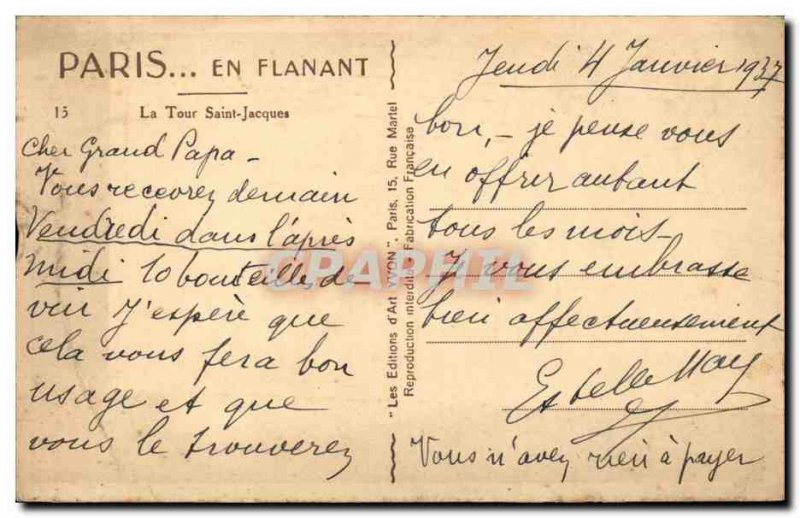 PARIS... EN FLANANT
15 La Tour Saint-Jacques
Cher Grand Papa -
Vous recevrez demain
Vendredi dans l'après
midi 10 bouteilles de
vin J'espère que
cela vous fera bon
usage et que
vous le trouverez
"Les Editions d'Art YVON", Paris, 15, Rue Martel
Reproduction interdite Fabrication Française
Jeudi 4 Janvier 1937
bon, - je pense vous
en offrir autant
tous les mois -
Je vous embrasse
bien affectueusement
Estelle May
Vous n'avez rien à payer
CPAPHIL